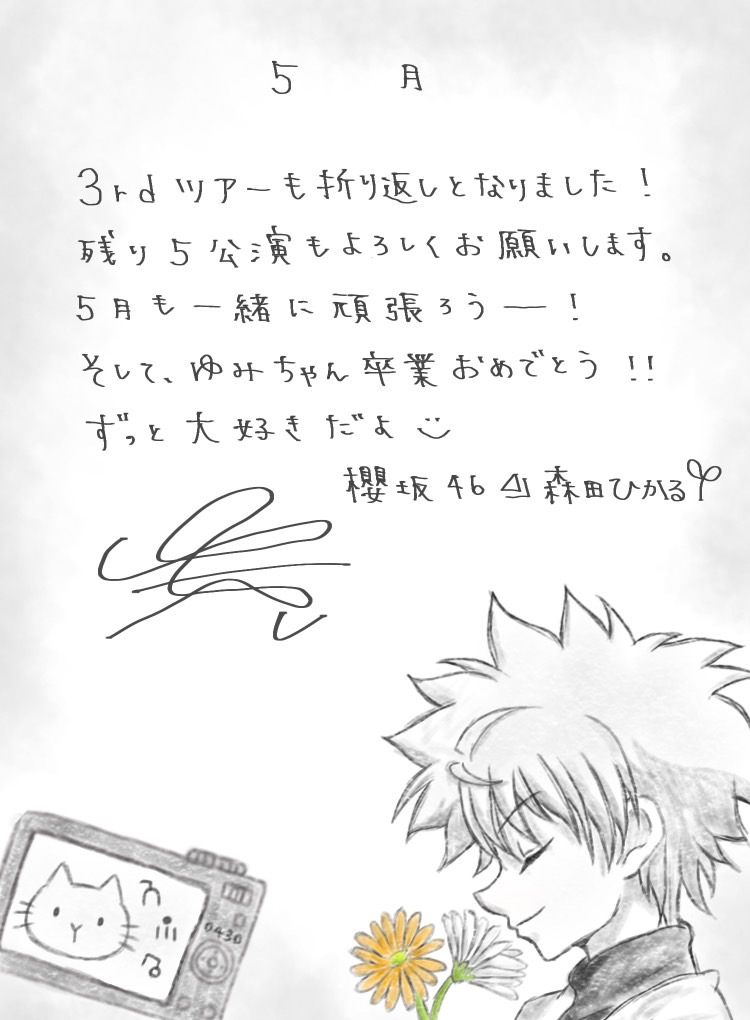 5月
3rdツアーも折り返しとなりました!
残り5公演もよろしくお願いします。
5月も一緒に頑張ろうー!
そして、ゆみちゃん卒業おめでとう!!
ずっと大好きだよ
櫻坂46 森田ひかる
0430